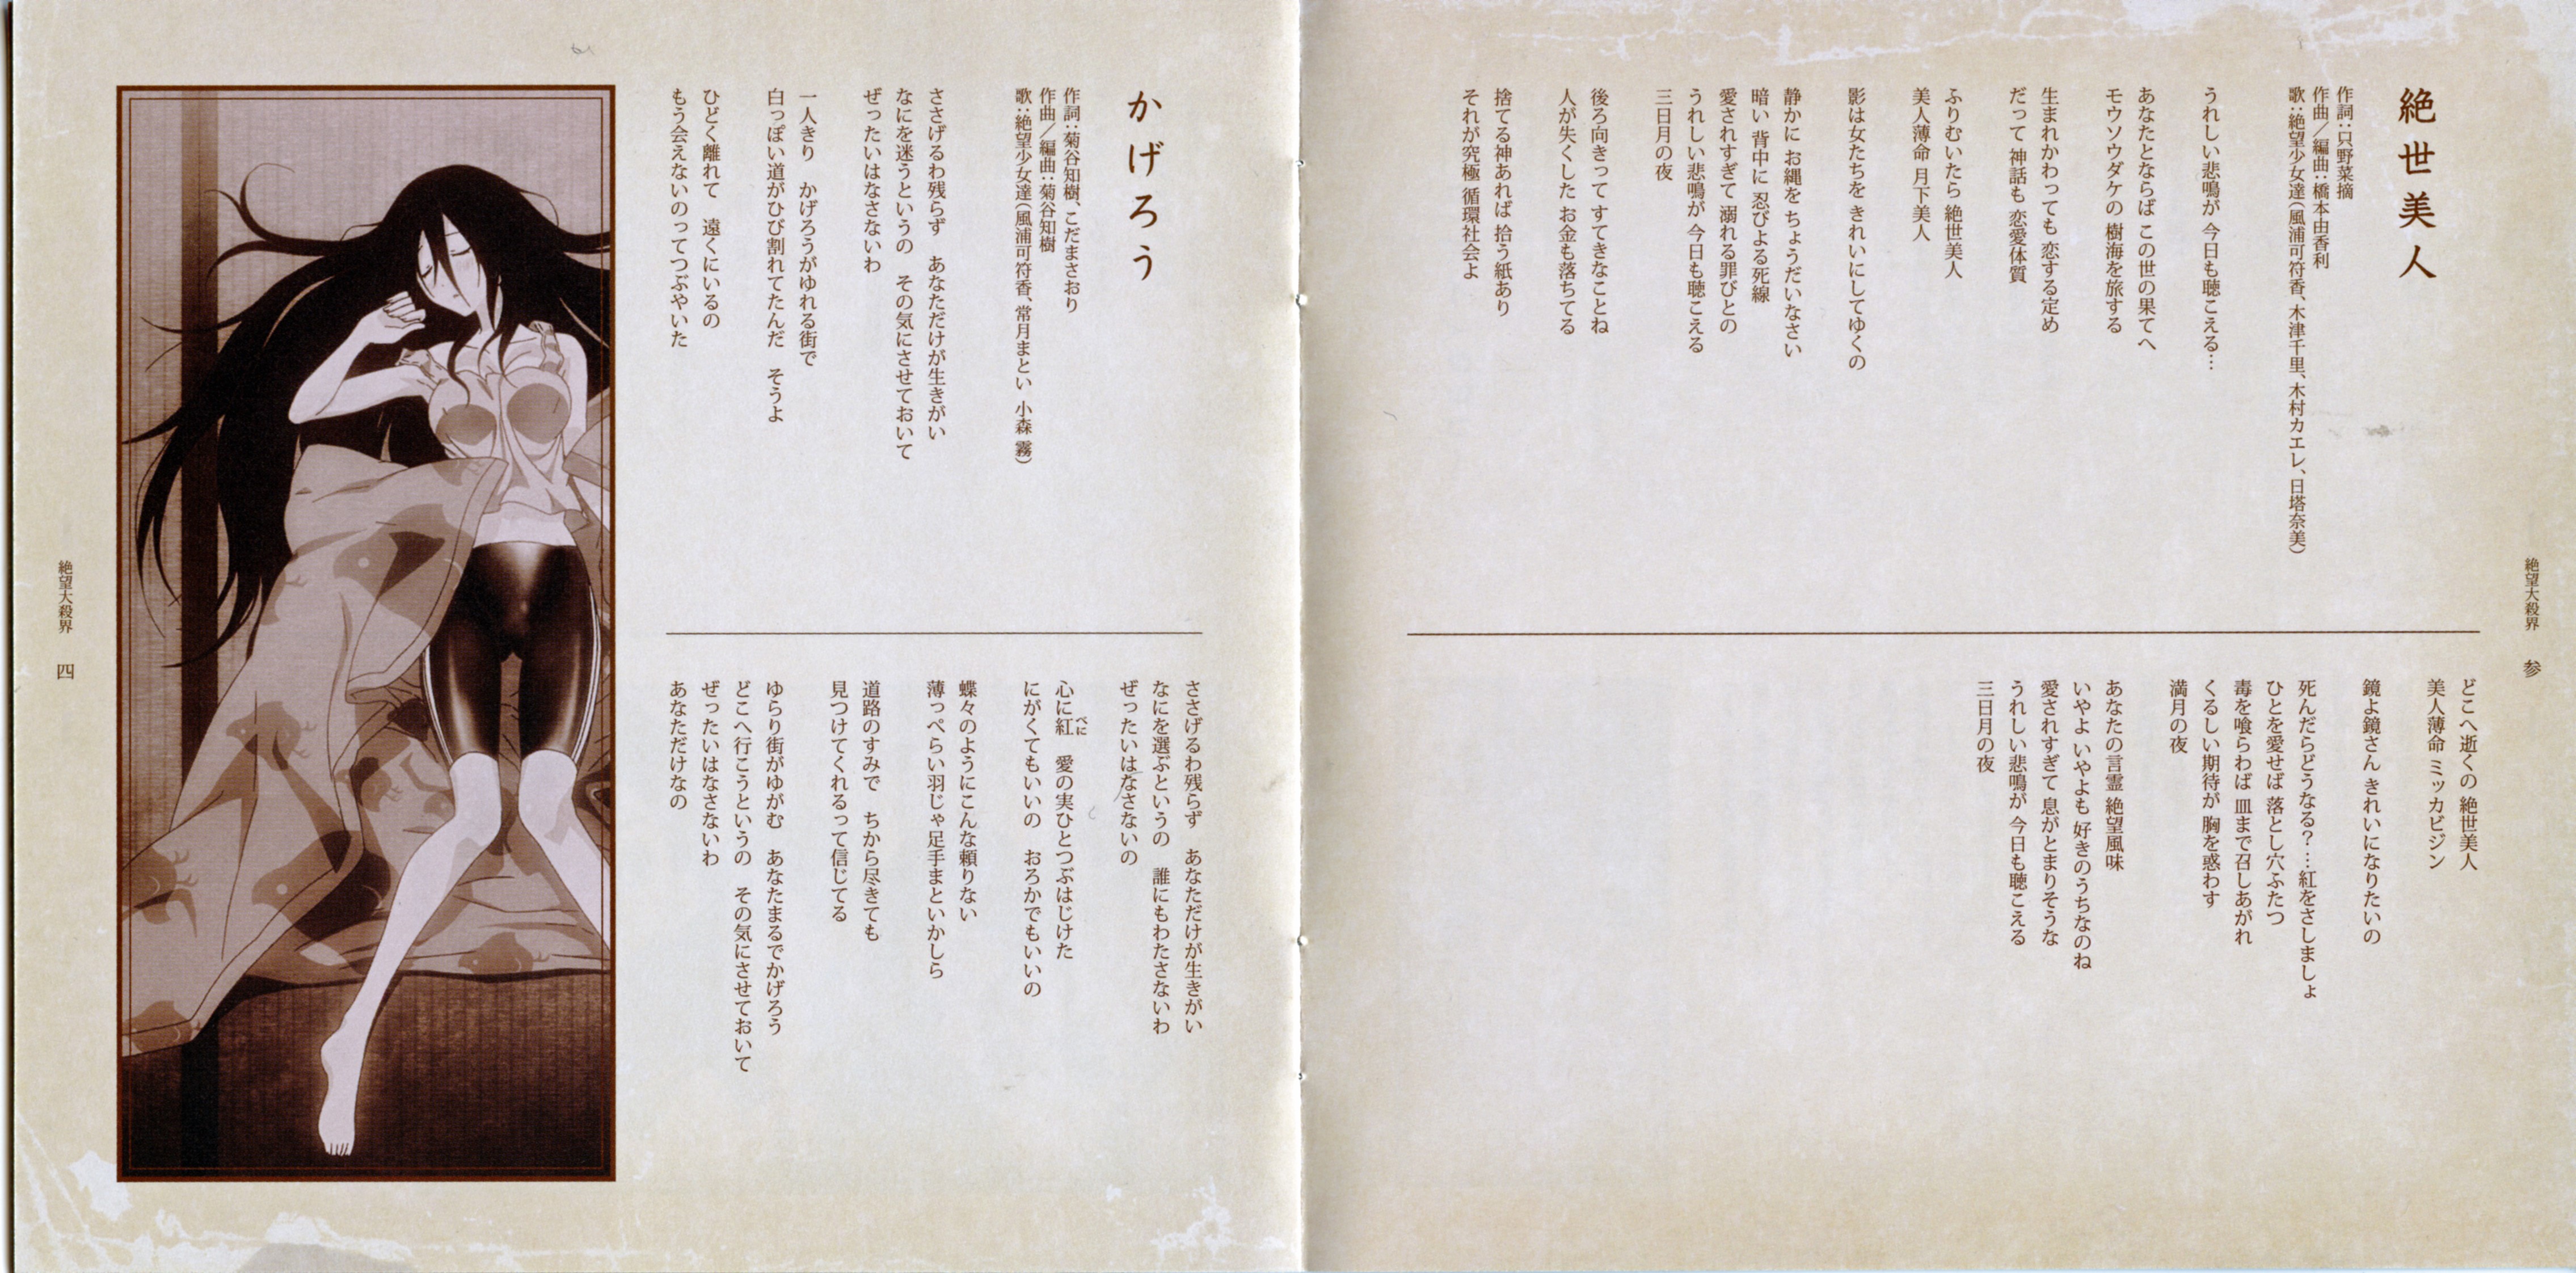 絶世美人
作詞：只野菜摘
作曲／編曲：橋本由香利
歌：絶望少女達（風浦可符香、木津千里、木村カエレ、日塔奈美）
うれしい悲鳴が 今日も聴こえる…
あなたとならば この世の果てへ
モウソウダケの 樹海を旅する
生まれかわっても 恋する定め
だって 神話も 恋愛体質
ふりむいたら 絶世美人
美人薄命 月下美人
影は女たちを きれいにしてゆくの
静かに お縄を ちょうだいなさい
暗い 背中に 忍びよる死線
愛されすぎて 溺れる罪びとの
うれしい悲鳴が 今日も聴こえる
三日月の夜
後ろ向きって すてきなことね
人が失くした お金も落ちてる
捨てる神あれば 拾う紙あり
それが究極 循環社会よ
どこへ逝くの 絶世美人
美人薄命 ミッカビジン
鏡よ鏡さん きれいになりたいの
死んだらどうなる？…紅をさしましょ
ひとを愛せば 落とし穴ふたつ
毒を喰らわば 皿まで召しあがれ
くるしい期待が 胸を惑わす
満月の夜
あなたの言霊 絶望風味
いやよ いやよも 好きのうちなのね
愛されすぎて 息がとまりそうな
うれしい悲鳴が 今日も聴こえる
三日月の夜
絶望大殺界 参
かげろう
作詞：菊谷知樹、こだまさおり
作曲／編曲：菊谷知樹
歌：絶望少女達（風浦可符香、常月まとい 小森 霧）
ささげるわ残らず　あなただけが生きがい
なにを迷うというの　その気にさせておいて
ぜったいはなさないわ
一人きり　かげろうがゆれる街で
白っぽい道がひび割れてたんだ　そうよ
ひどく離れて　遠くにいるの
もう会えないのってつぶやいた
ささげるわ残らず　あなただけが生きがい
なにを選ぶというの　誰にもわたさないわ
ぜったいはなさないの
心に紅　愛の実ひとつぶはじけた
べに
にがくてもいいの　おろかでもいいの
蝶々のようにこんな頼りない
薄っぺらい羽じゃ足手まといかしら
道路のすみで　ちから尽きても
見つけてくれるって信じてる
ゆらり街がゆがむ　あなたまるでかげろう
どこへ行こうというの　その気にさせておいて
ぜったいはなさないわ
あなただけなの
絶望大殺界 四